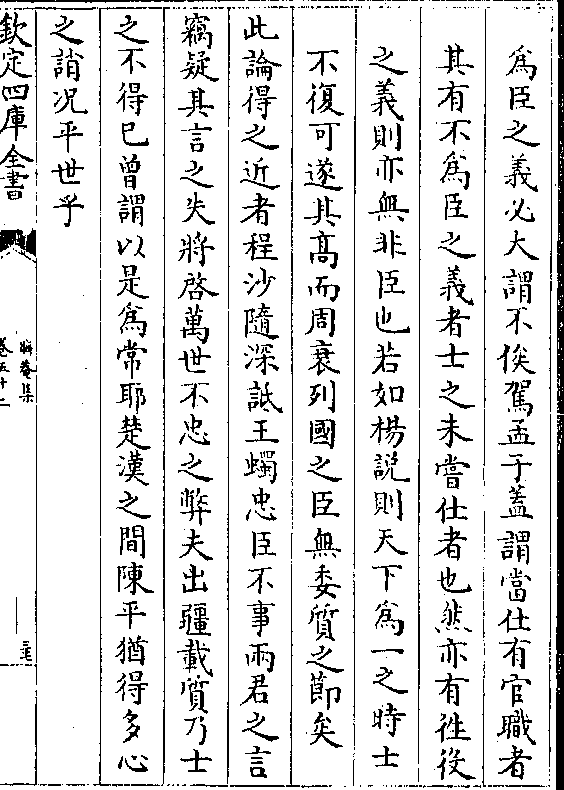 爲臣之義必大謂不俟駕孟子蓋謂當仕有官職者
其有不爲臣之義者士之未嘗仕者也然亦有徃役
之義則亦無非臣也若如楊説則天下爲一之時士
不復可遂其髙而周衰列國之臣無委質之節矣
此論得之近者程沙隨深詆王蠋忠臣不事兩君之言
竊疑其言之失將啓萬世不忠之弊夫出疆載質乃士
之不得已曽謂以是爲常耶楚漢之間陳平猶得多心
之誚况平世乎
欽定四庫全書
晦菴集
卷五十二